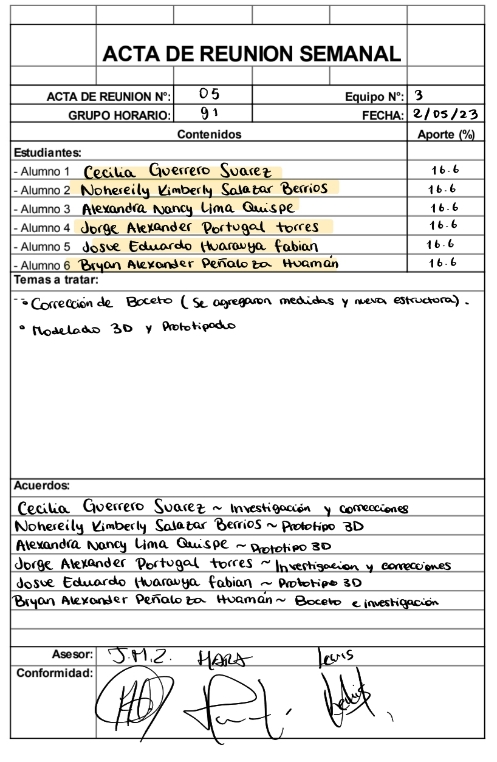 ACTA DE REUNION SEMANAL
ACTA DE REUNION N°: 05 Equipo N°: 3
GRUPO HORARIO: 91 FECHA: 2/05/23
Contenidos Aporte (%)
Estudiantes:
- Alumno 1 Cecilia Guerrero Suarez 16.6
- Alumno 2 Nohereily Kimberly Salazar Berrios 16.6
- Alumno 3 Alexandra Nancy Lima Quispe 16.6
- Alumno 4 Jorge Alexander Portugal torres 16.6
- Alumno 5 Josue Eduardo Huarauya fabian 16.6
- Alumno 6 Bryan Alexander Peñaloza Huamán 16.6
Temas a tratar:
• Corrección de Boceto (Se agregaron medidas y nueva estructura).
• Modelado 3D y Prototipado
Acuerdos:
Cecilia Guerrero Suarez ~ Investigación y correcciones
Nohereily Kimberly Salazar Berrios ~ Prototipo 3D
Alexandra Nancy Lima Quispe ~ Prototipo 3D
Jorge Alexander Portugal torres ~ Investigacion y correcciones
Josue Eduardo Huarauya fabian ~ Prototipo 3D
Bryan Alexander Peñaloza Huamán ~ Boceto e investigación
Asesor: J.M.Z.
Conformidad: